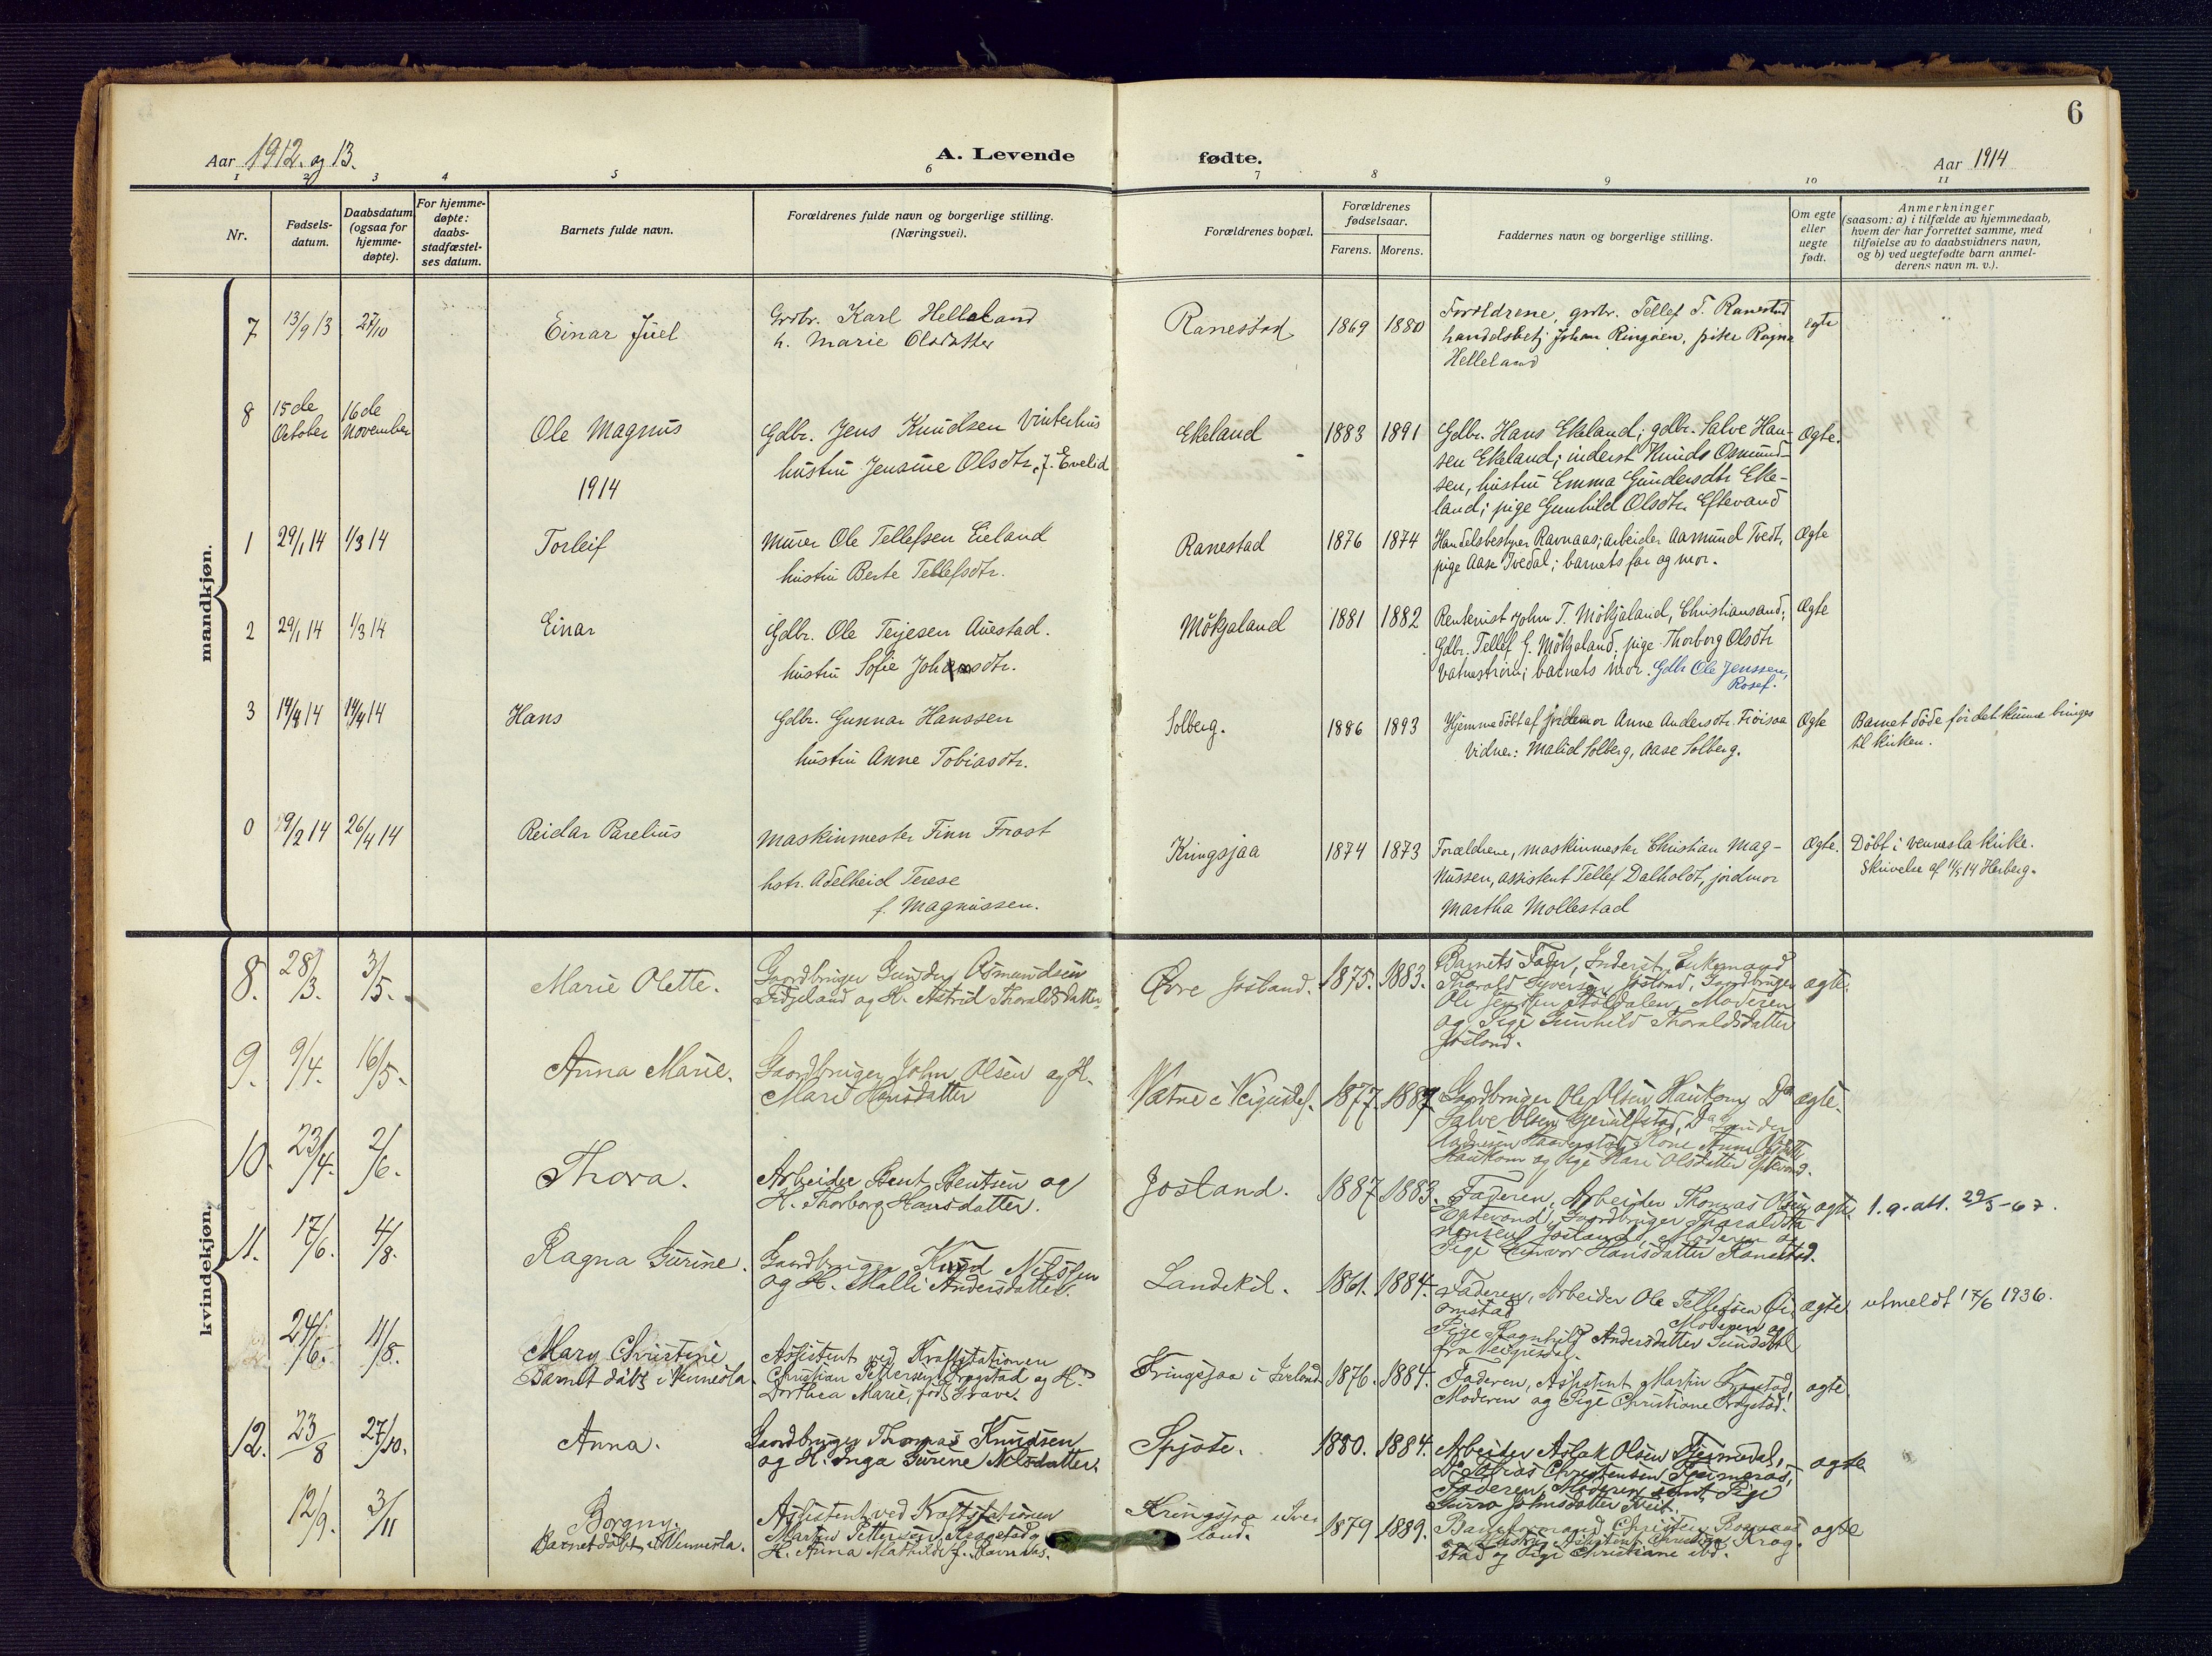 6
Aar 1912. og 13.
A. Levende fødte.
Aar 1914
1 2 3 4 5 6 7 8 9 10 11
Nr.
Fødsels-
datum.
Daabsdatum
(ogsaa for
hjemme-
døpte).
For hjemme-
døpte:
daabs-
stadfæstel-
ses datum.
Barnets fulde navn.
Forældrenes fulde navn og borgerlige stilling.
(Næringsvei).
Forældrenes bopæl.
Forældrenes
fødselsaar.
Farens. Morens.
Faddernes navn og borgerlige stilling.
Om egte
eller
uegte
født.
Anmerkninger
(saasom: a) i tilfælde av hjemmedaab,
hvem der har forrettet samme, med
tilføielse av to daabsvidners navn,
og b) ved uegtefødte barn anmel-
derens navn m. v.).
mandkjøn.
7 13/9 13 27/10 Einar Juel
Grdbr. Karl Helleland
h. Marie Olsdatter
Ranestad 1869 1880
Forældrene, grdbr. Tellef T. Ranestad
handelsbetj. Johan Ringöen, pike Ragna
Helleland
egte
8 15de October 16de November Ole Magnus
Gdbr. Jens Knudsen Vinterhus
hustru Jensine Olsdtr. f. Evelid
Ekeland 1883 1891
Gdbr. Hans Ekeland; gdbr. Salve Han-
sen Ekeland; inderst Knuds Osmund-
sen, hustru Emma Gundersdtr Eke-
land; pige Gunhild Olsdtr Eftevand
Ægte.
1914
1 29/1 14 1/3 14 Torleif
Murer Ole Tellefsen Eieland
hustru Berte Tellefsdtr.
Ranestad 1876 1874
Handelsbestyrer Ravnaas; arbeider Aamund Tvedt,
pige Aase Ivedal; barnets far og mor.
Ægte
2 29/1 14 1/3 14 Einar
Gdbr. Ole Terjesen Auestad.
hustru Sofie Johansdtr.
Mökjaland 1881 1882
Rentenist John T. Mökjaland, Christiansand;
Gdbr. Tellef G. Mökjaland; pige Thorborg Olsdtr
Vatnestrøm; barnets mor. Gdbr Ole Jenssen,
Rosef.
Ægte
3 14/4 14 14/4 14 Hans
Gdbr. Gunnar Hanssen
hustru Anne Tobiasdtr.
Solberg. 1886 1893
Hjemmedöbt af jordemor Anne Andersdtr. Fröisaa
Vidner: Malid Solberg, Aase Solberg.
Ægte
Barnet döde før det kunne bringes
til kirken.
0 29/2 14 26/4 14 Reidar Parelius
Maskinmester Finn Frost
hstr. Adelheid Terese
f. Magnussen.
Kringsjaa 1874 1873
Forældrene, maskinmester Christian Mag-
nussen, assistent Tellef Dalholdt, jordmor
Martha Mollestad
Ægte.
Döbt i Vennesla kirke.
Skrivelse af 11/5 14 Herberg.
kvindekjøn.
8. 28/3. 3/5. Marie Olette.
Gaardbruger Gunder Osmundsen
Fidjeland og H. Astrid Thoraldsdatter
Øvre Josland. 1875. 1883.
Barnets Fader, Inderst Enkemand
Thorald Syversen Josland, Gaardbruger
Ole Jensen Stöldalen, Moderen
og Pige Gunhild Thoraldsdatter
Josland.
ægte.
9. 9/4. 16/5. Anna Marie.
Gaardbruger John Olsen og H.
Mari Hansdatter
Vatne i Veigusdal. 1877 1887
Gaardbruger Ole Olsen Haukom, Do
Salve Olsen Gjerulfstad, Do Gunder
Haukom og Pige Kari Olsdatter Eptevand.
ægte.
10. 23/4. 2/6. Thora.
Arbeider Bent Bentsen og
H. Thorborg Hansdatter.
Josland. 1887 1883.
Faderen, Arbeider Thomas Olsen
Eptevand, Gaardbruger Tharald
Josland, Moderen og
Pige Gunvor Hansdatter Ranestad.
ægte.
1. g. att. 29/5-67.
11. 17/6. 4/8. Ragna Gurine.
Gaardbruger Knud Nilssen
og H. Malli Andersdatter.
Landskil. 1861. 1884.
Faderen, Arbeider Ole Tellefsen Öi-
omstad Moderen og
Pige Ragnhild Andersdatter Sundsdal
fra Veigusdal.
ægte
utmeldt 17/6 1936.
24/6. 11/8. Mary Christine
Barnet döbt i Vennesla.
Assistent ved Kraftstationen
Christian Pettersen Krogstad og H.
Dorthea Marie, född Grave.
Kringsjaa i Iveland 1876. 1884.
Faderen, Assistent Martin Krogstad,
Moderen og Pige Christiane Krogstad.
ægte.
12. 23/8 27/10. Anna.
Gaardbruger Thomas Knudsen
og H. Inga Gurine Nilsdatter.
Spjote. 1880. 1884.
Arbeider Aslak Olsen Fjermedal,
Do Tobias Christensen Fjermeros,
Faderen, Moderen samt Pige
Gurro Johnsdatter Tveit.
ægte
12/9. 3/11 Borgny.
Barnet döbt i Vennesla.
Assistent ved Kraftstationen
Martin Pettersen Krogstad og
H. Anna Mathilde f. Ravnaas.
Kringsjaa i Ive-
land. 1879 1889.
Baneformand Christen Rosnaas
og Hustru, Assistent Christian Krog-
stad og Pige Christiane ibd.
ægte